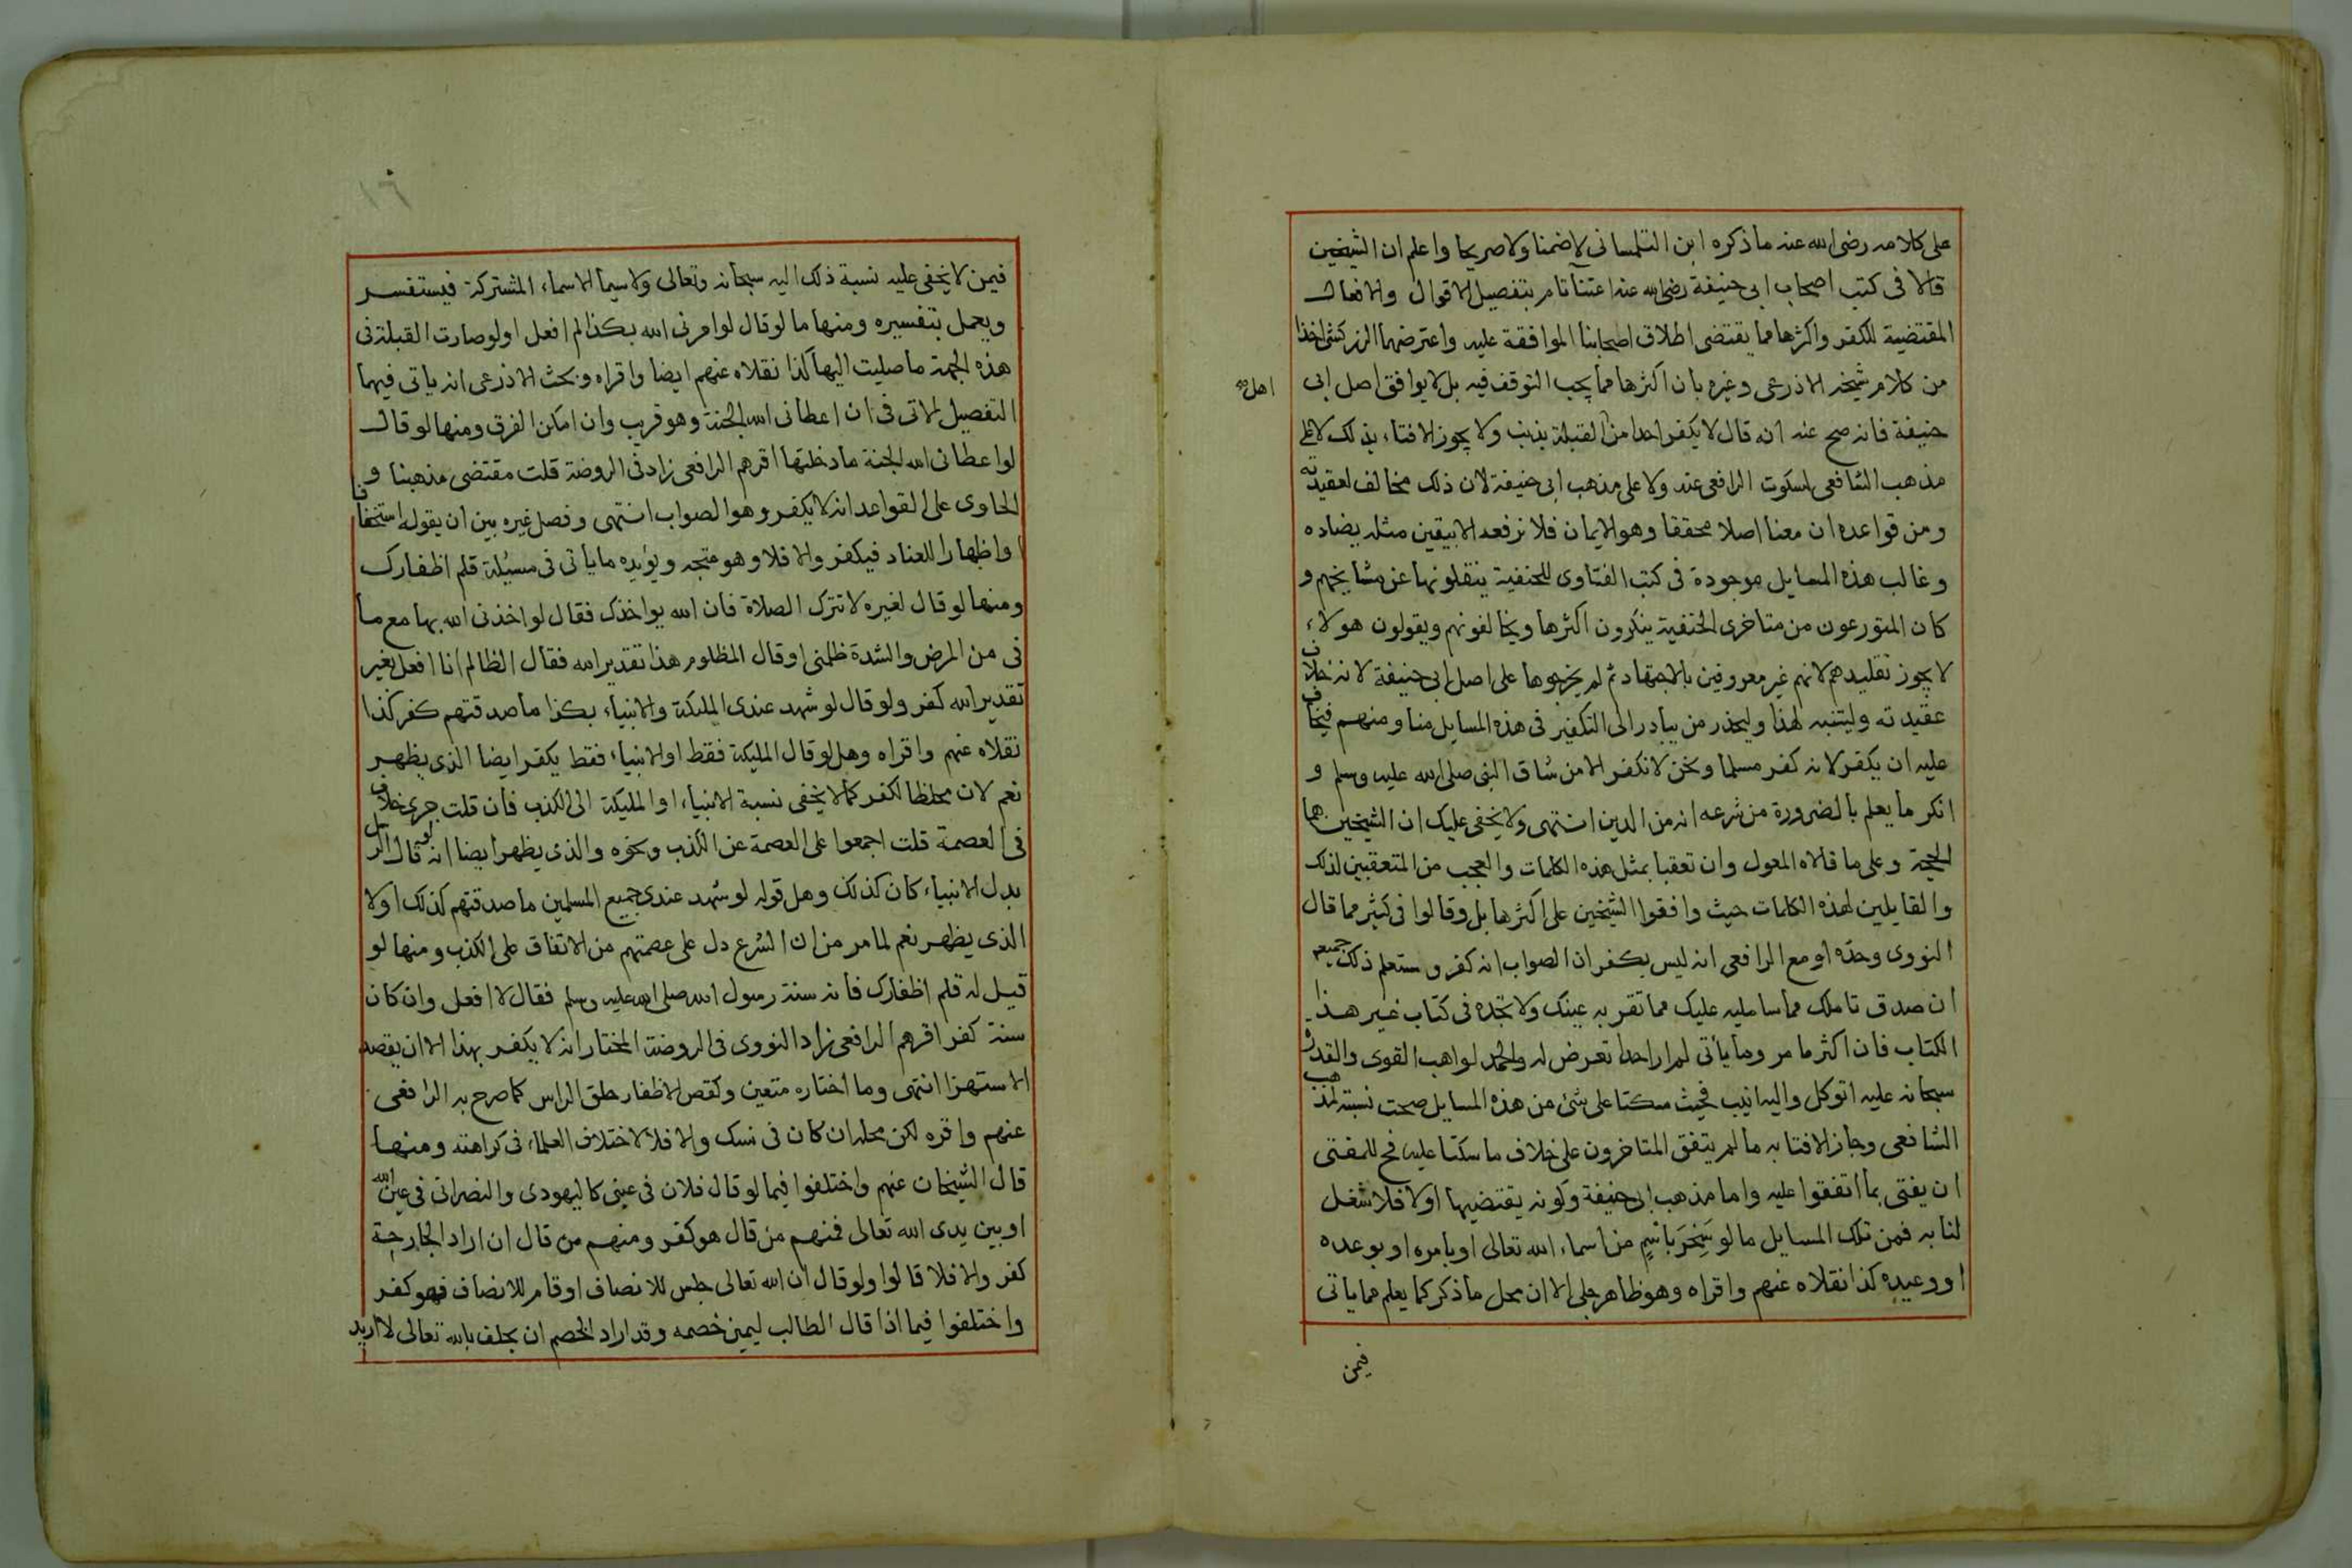 على كلامه رضى الله عنه ما ذكره ابن التلمسانى لا ضمنا ولا صريحا واعلم ان الشيخين
قالا فى كتب اصحاب ابى حنيفة رضى الله عنه اعتنآ تام بتفصيل الاقوال والافعال
المقتضية للكفر واكثرها مما يقتضى اطلاق اصحابنا الموافقة عليه واعترضهما الزركشى اخذا
من كلام شيخه الاذرعى وغيره بان اكثرها مما يجب التوقف فيه بل لا يوافق اصل ابى
حنيفة فانه صح عنه انه قال لا يكفر احدا من القبلة بذنب ولا يجوز الافتاء بذلك لا على
اهل
مذهب الشافعى لسكوت الرافعى عنه ولا على مذهب ابى حنيفة لان ذلك مخالف لعقيدته
ومن قواعده ان معنا اصلا محققا وهو الايمان فلا نرفعه الا بيقين مثله يضاده
وغالب هذه المسايل موجودة فى كتب الفتاوى للحنفية ينقلونها عن مشايخهم و
كان المتورعون من متاخرى الحنفية ينكرون اكثرها ويخالفونهم ويقولون هولاء
لا يجوز تقليدهم لانهم غير معروفين بالاجتهاد ثم لم يخرجوها على اصل ابى حنيفة لانه خلاف
عقيدته وليتنبه لهذا وليحذر من يبادر الى التكفير فى هذه المسايل منا ومنهم فيخاف
عليه ان يكفر لانه كفر مسلما ونحن لا نكفر الا من شاق النبى صلى الله عليه وسلم و
انكر ما يعلم بالضرورة من شرعه انه من الدين انتهى ولا يخفى عليك ان الشيخين هما
الحجة وعلى ما قالاه المعول وان تعقبا بمثل هذه الكلمات والعجب من المتعقبين لذلك
والقايلين لهذه الكلمات حيث وافقوا الشيخين على اكثرها بل وقالوا فى كثير مما قال
النووى وحده او مع الرافعى انه ليس بكفر ان الصواب انه كفر وستعلم ذلك جميعه
ان صدق تاملك مما سامليه عليك مما تقر به عينك ولا تجده فى كتاب غير هذا
الكتاب فان اكثر ما مر وما يأتى لم ار احدا تعرض له والحمد لواهب القوى والقدر
سبحانه عليه اتوكل واليه انيب فحيث سكتا على شئ من هذه المسايل صحت نسبته لمذهب
الشافعى وجاز الافتا به ما لم يتفق المتاخرون على خلاف ما سكتا عليه فح للمفتى
ان يفتى بما اتفقوا عليه واما مذهب ابى حنيفة وكونه يقتضيها اولا فلا شغل
لنا به فمن تلك المسايل ما لو سَخِرَ باسْمٍ من اسماء الله تعالى او بامره او بوعده
او وعيده كذا نقلاه عنهم واقراه وهو ظاهر جلى الا ان محل ما ذكر كما يعلم مما ياتى
فيمن
فيمن لا يخفى عليه نسبة ذلك اليه سبحانه وتعالى ولا سيما الاسماء المشتركة فيستفسر
ويعمل بتفسيره ومنها ما لو قال لو امرنى الله بكذا لم افعل او لو صارت القبلة فى
هذه الجهة ما صليت اليها كذا نقلاه عنهم ايضا واقراه وبحث الاذرعى انه ياتى فيهما
التفصيل الاتى فى ان اعطانى الله الجنة وهو قريب وان امكن الفرق ومنها لو قال
لو اعطانى الله الجنة ما دخلتها اقرهم الرافعى زاد فى الروضة قلت مقتضى مذهبنا و
الحاوى على القواعد انه لا يكفر وهو الصواب انتهى وفصل غيره بين ان يقوله استخفافا
واظهارا للعناد فيكفر والا فلا وهو متجه ويؤيده ما يأتى فى مسئلة قلم اظفارك
ومنها لو قال لغيره لا تترك الصلاة فان الله يواخذك فقال لو اخذنى الله بها مع ما
فى من المرض والشدة ظلمنى او قال المظلوم هذا تقدير الله فقال الظالم انا افعل بغير
تقدير الله كفر ولو قال لو شهد عندى المليكة والانبياء بكذا ما صدقتهم كفر كذا
نقلاه عنهم واقراه وهل لو قال المليكة فقط او الانبياء فقط يكفر ايضا الذى يظهر
نعم لان ملحظ الكفر كما لا يخفى نسبة الانبياء او المليكة الى الكذب فان قلت جرى خلاف
فى العصمة قلت اجمعوا على العصمة عن الكذب ونحوه والذى يظهر ايضا انه لو قال الرسل
بدل الانبياء كان كذلك وهل قوله لو شهد عندى جميع المسلمين ما صدقتهم كذلك اولا
الذى يظهر نعم لما مر من ان الشرع دل على عصمتهم من الاتفاق على الكذب ومنها لو
قيل له قلم اظفارك فانه سنة رسول الله صلى الله عليه وسلم فقال لا افعل وان كان
سنة كفر اقرهم الرافعى زاد النووى فى الروضة المختار انه لا يكفر بهذا الا ان يقصد
الاستهزا انتهى وما اختاره متعين وكقص الاظفار حلق الراس كما صرح به الرافعى
عنهم واقره لكن محله ان كان فى نسك والا فلا لاختلاف العلماء فى كراهته ومنها
قال الشيخان عنهم واختلفوا فيما لو قال فلان فى عينى كاليهودى والنصرانى فى عين الله
او بين يدى الله تعالى فمنهم من قال هو كفر ومنهم من قال ان اراد الجارحة
كفر والا فلا قالوا ولو قال ان الله تعالى جلس للانصاف او قام للانصاف فهو كفر
واختلفوا فيما اذا قال الطالب ليمين خصمه وقد اراد الخصم ان يحلف بالله تعالى لا اريد